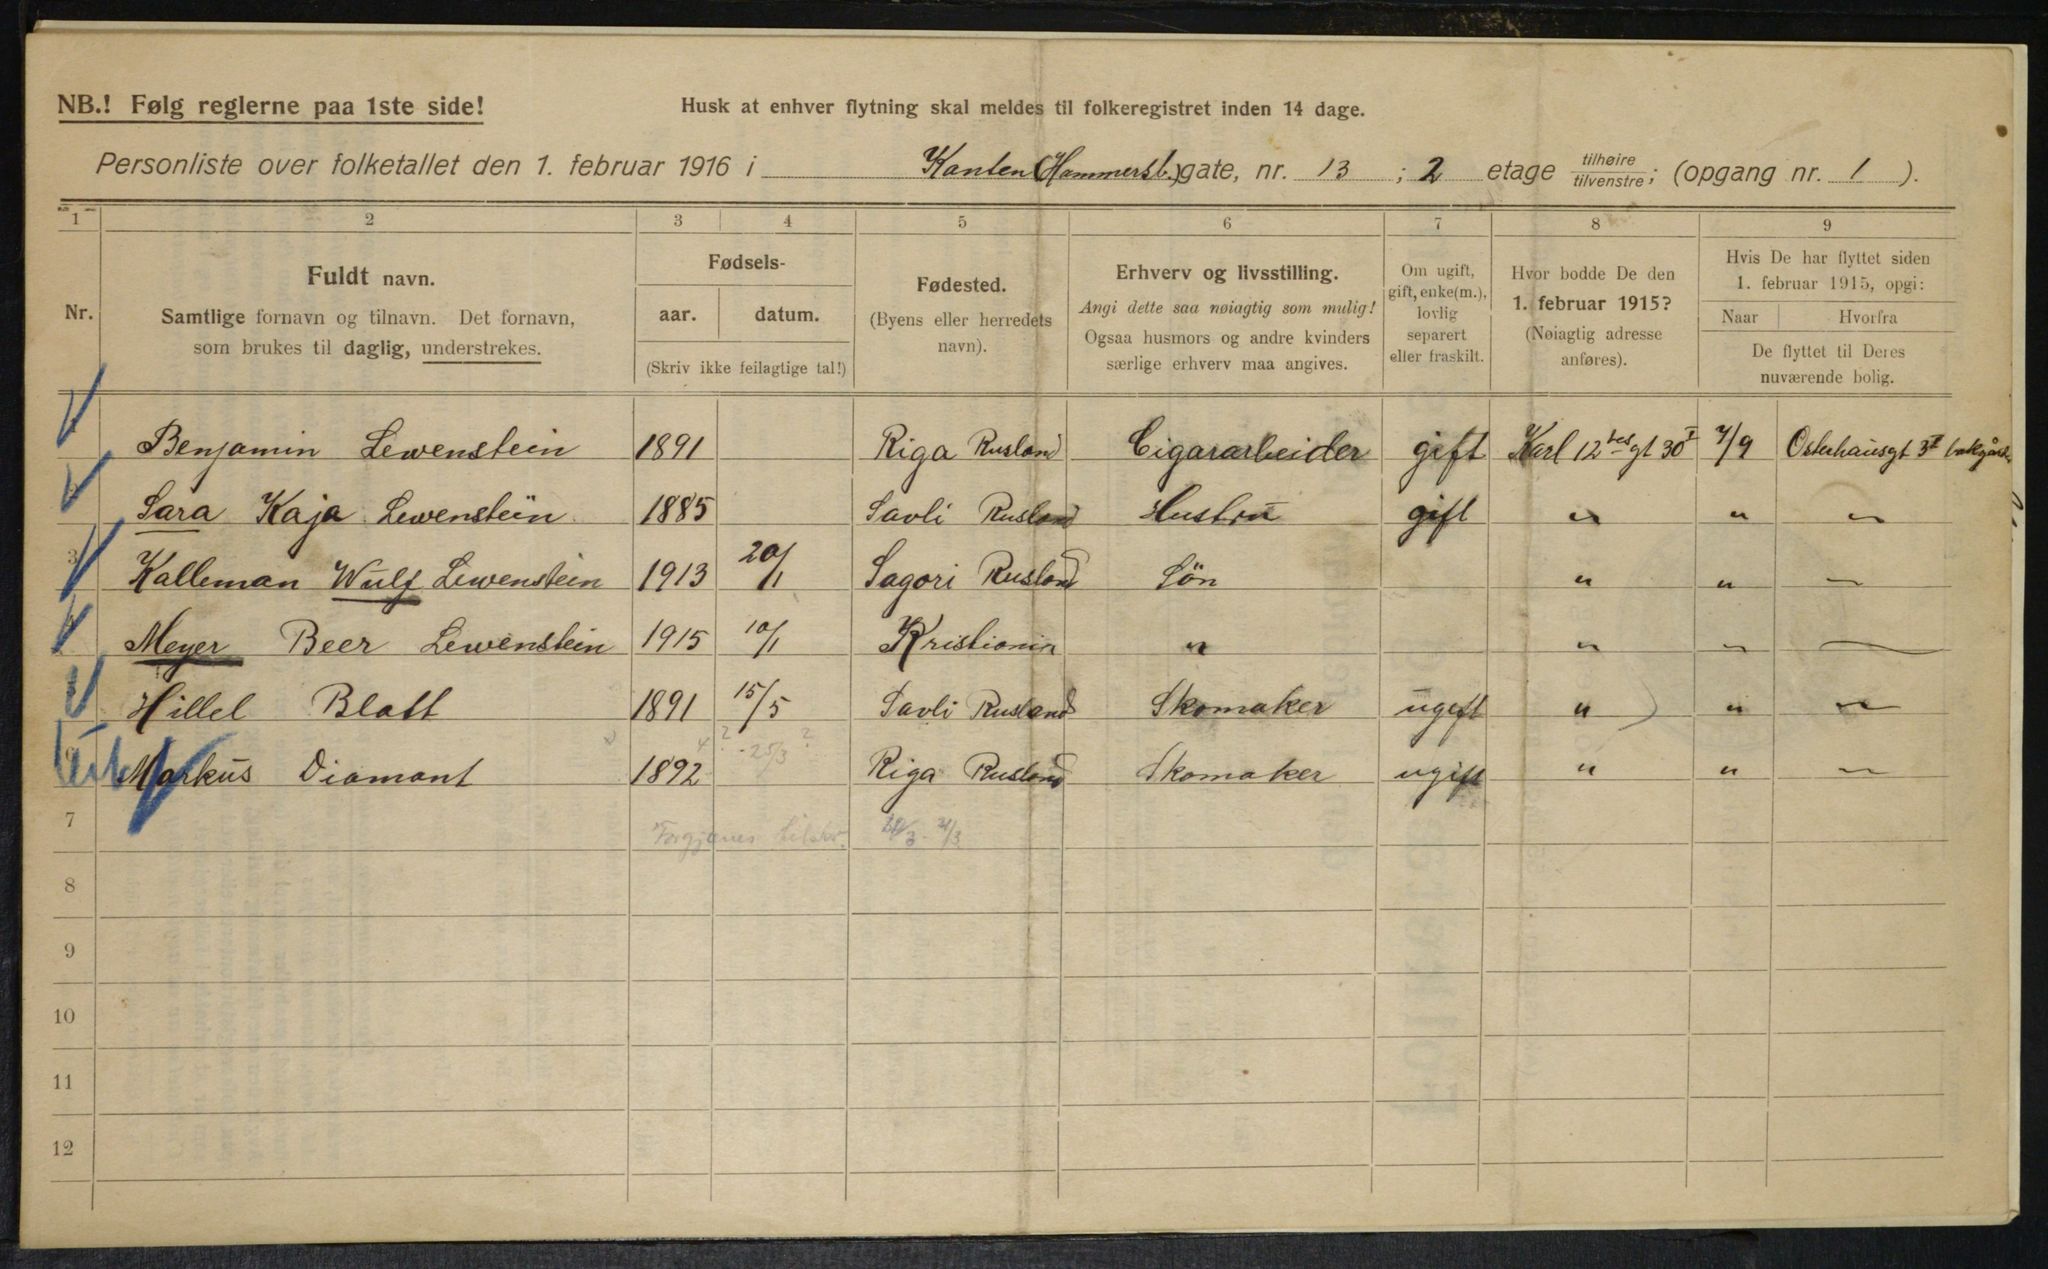 NB.! Følg reglerne paa 1ste side!
Husk at enhver flytning skal meldes til folkeregistret inden 14 dage.
Personliste over folketallet den 1. februar 1916 i Kanten (Hammersb.) gate, nr. 13 ; 2 etage tilhøire tilvenstre; (opgang nr. 1 ).
1 2 3 4 5 6 7 8 9
Nr.
Fuldt navn.
Samtlige fornavn og tilnavn. Det fornavn,
som brukes til daglig, understrekes.
Fødsels-
aar. datum.
(Skriv ikke feilagtige tal!)
Fødested.
(Byens eller herredets
navn).
Erhverv og livsstilling.
Angi dette saa nøiagtig som mulig!
Ogsaa husmors og andre kvinders
særlige erhverv maa angives.
Om ugift,
gift, enke(m.),
lovlig
separert
eller fraskilt.
Hvor bodde De den
1. februar 1915?
(Nøiagtig adresse
anføres).
Hvis De har flyttet siden
1. februar 1915, opgi:
Naar Hvorfra
De flyttet til Deres
nuværende bolig.
Benjamin Lewenstein 1891 Riga Rusland Cigararbeider gift Karl 12tes gt 30 I 7/9 Osterhausgt 3 II
Sara Kaja Lewenstein 1885 Savli Rusland Hustru gift " " "
3 Kalleman Wulf Lewenstein 1913 20/1 Sagori Rusland Sön " " "
Meyer Beer Lewenstein 1915 10/1 Kristiania " " " "
Hillel Blatt 1891 15/5 Savli Rusland Skomaker ugift " " "
6 Markus Diamant 1892 4 ? -25/3 ? Riga Rusland Skomaker ugift " " "
7
8
9
10
11
12